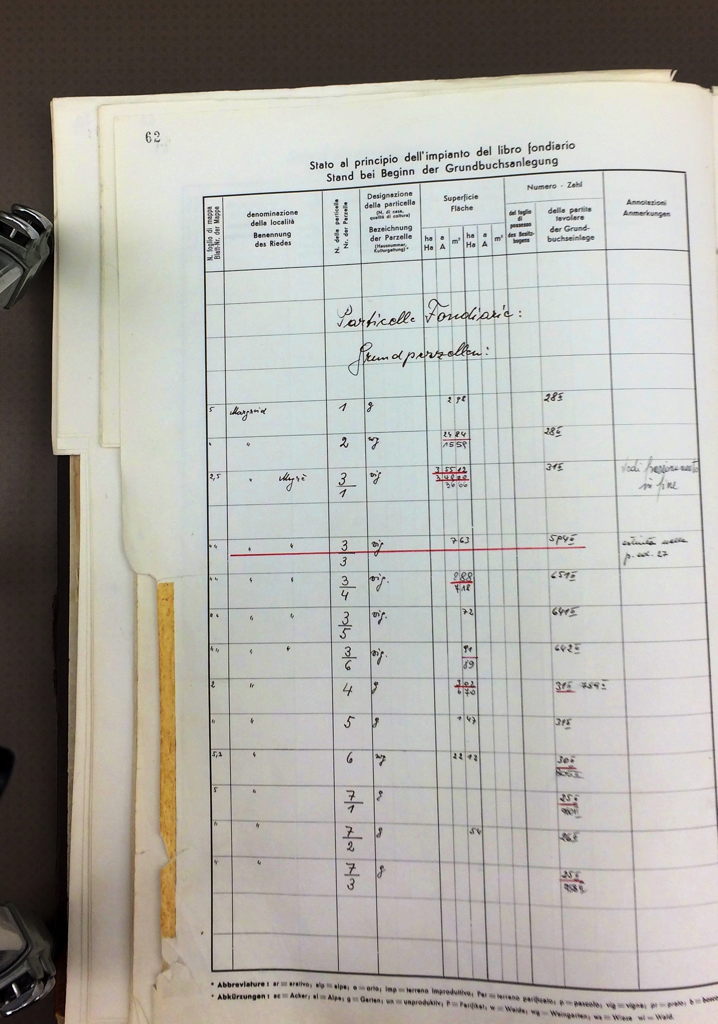 62
Stato al principio dell'impianto del libro fondiario
Stand bei Beginn der Grundbuchsanlegung
N. foglio di mappa
Blatt-Nr. der Mappe
denominazione
della località
Benennung
des Riedes
N. della particella
Nr. der Parzelle
Designazione
della particella
(N. di casa,
qualità di coltura)
Bezeichnung
der Parzelle
(Hausnummer,
Kulturgattung)*
Superficie
Fläche
ha a m² ha a m²
Ha A Ha A
Numero - Zahl
del foglio di
possesso
des Besitz-
bogens
della partita
tavolare
der Grund-
buchseinlage
Annotazioni
Anmerkungen
Particelle Fondiarie:
Grundparzellen:
5 Margreid 1 g 2 98 28 II
" " 2 wg 24 84 28 II
15 59
2,5 " 3/1 vig 3 55 12 31 II
36 00 in fine
" " " 3/3 vig 7 63
p. ed. 27
" " 3/4 vig. 8 88 651 II
7 18
" " " 3/5 vig. 72 641 II
" " " 3/6 vig. 91 642 II
89
2 " 4 g 31 II
6 70
" " 5 g 1 47 31 II
5,2 " 6 wg 22 12 30 II
5 " 7/1 g 25 II
" " 7/2 g 54 26 II
" " 7/3 g 25 II
* Abbreviature: ar = arativo, alp = alpe; o = orto; imp = terreno improduttivo; Par = terreno parificato; p = pascolo; vig = vigna; pr = prato; b = bosco
* Abkürzungen: ac = Acker; al = Alpe; g = Garten; un = unproduktiv; P = Parifikat; w = Weide; wg = Weingarten; ws = Wiese wl = Wald.